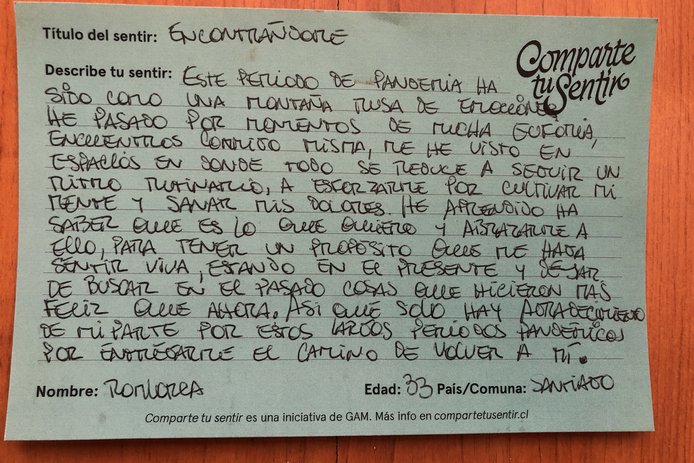 Título del sentir: ENCONTRÁNDOME
Comparte tu Sentir
Describe tu sentir: ESTE PERÍODO DE PANDEMIA HA
SIDO COMO UNA MONTAÑA RUSA DE EMOCIONES
HE PASADO POR MOMENTOS DE MUCHA EUFORIA,
ENCUENTROS CONMIGO MISMA, ME HE VISTO EN
ESPACIOS EN DONDE TODO SE REDUCE A SEGUIR UN
RITMO RUTINARIO, A ESFORZARME POR CULTIVAR MI
MENTE Y SANAR MIS DOLORES. HE APRENDIDO HA
SABER QUE ES LO QUE QUIERO Y ABRAZARME A
ELLO, PARA TENER UN PROPOSITO QUE ME HAGA
SENTIR VIVA, ESTANDO EN EL PRESENTE Y DEJAR
DE BUSCAR EN EL PASADO COSAS QUE HICIERON MAS
FELIZ QUE AHORA. ASI QUE SOLO HAY AGRADECIMIENTO
DE MI PARTE POR ESTOS LARGOS PERIODOS PANDEMICOS
POR ENTREGARME EL CAMINO DE VOLVER A MÍ.
Nombre: Edad: 33 País/Comuna: SANTIAGO
Comparte tu sentir es una iniciativa de GAM. Más info en compartetusentir.cl